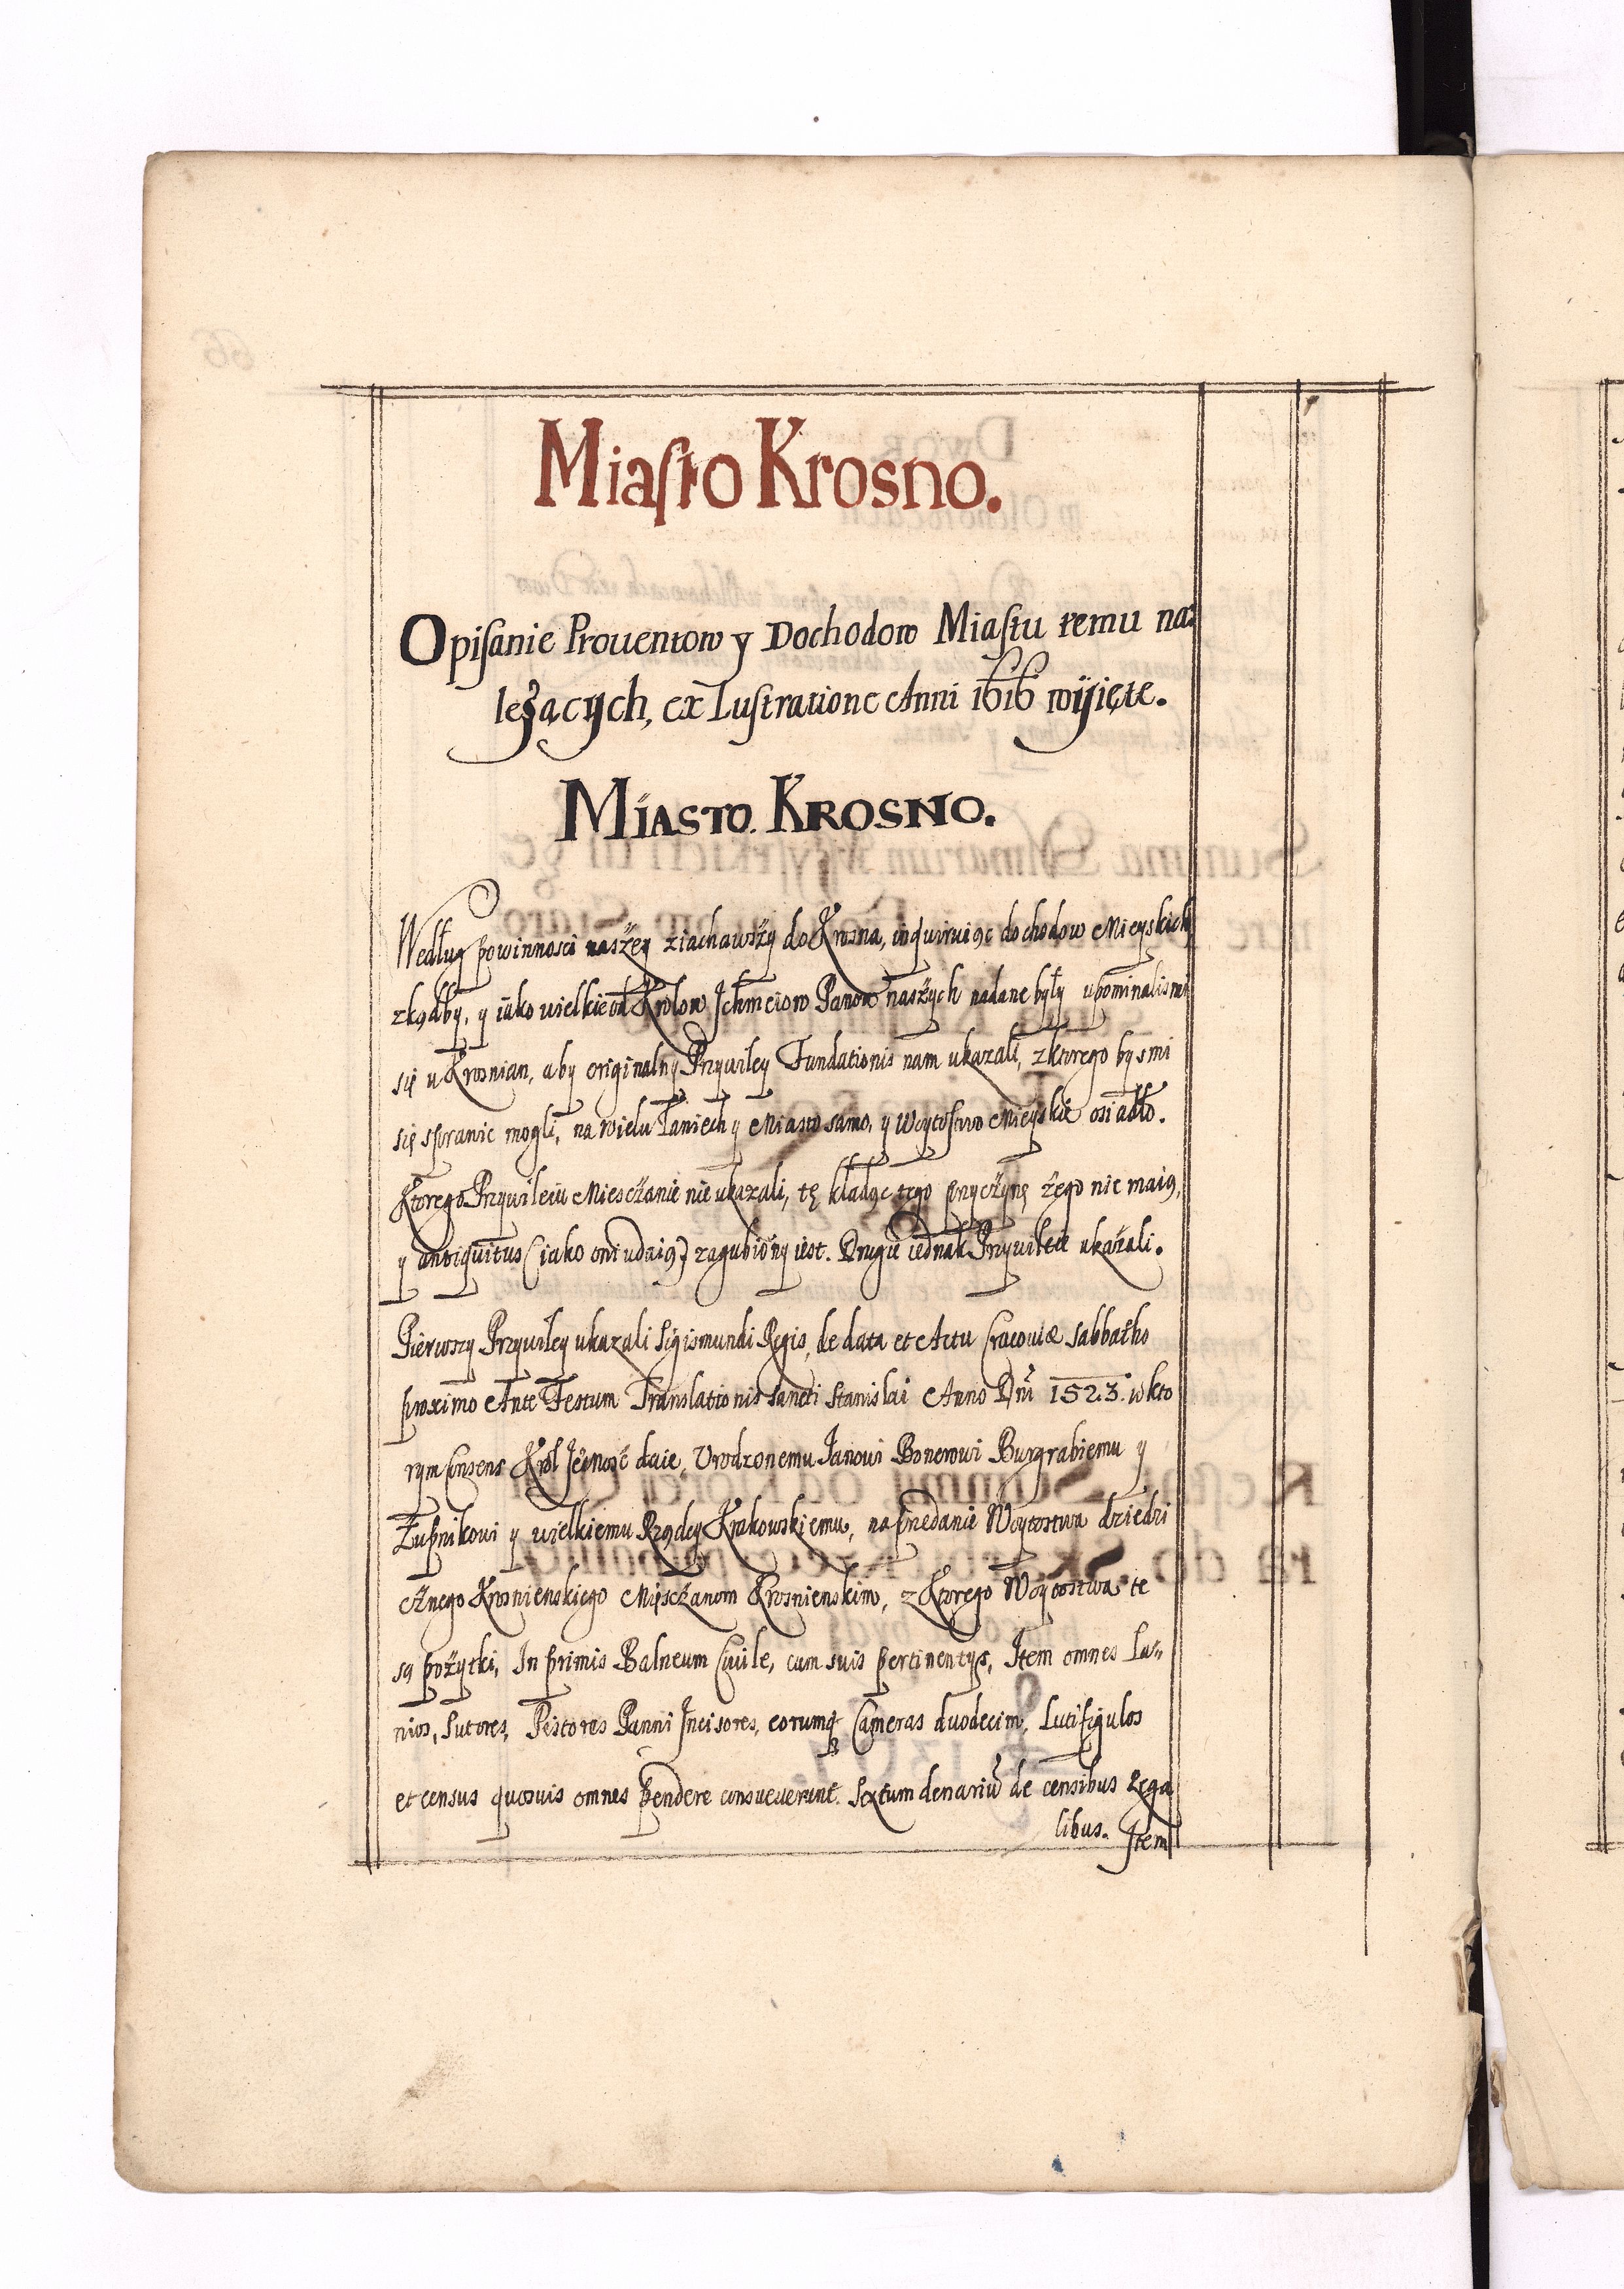 Miasto Krosno.
Opisanie Prouentow y Dochodow Miastu temu na=
leżących, ex Lustratione Anni 1616 wyięte.
MIASTO KROSNO.
Według powinnosci naszey ziachawszy do Krosna, inquiruiąc dochodow Mieyskich
zkądby, y iako wielkie od Krolow Jchmciow Panow naszych nadane były upominalismi
się u Krosnian, aby originalny Przywiley Fundationis nam ukazali, z ktorego bysmi
się sprawic mogli, na wielu Łaniech y Miasto samo, y Woytostwo Mieyskie osiadło.
Ktorego Przywileiu Miesczanie nie ukazali, tę kładąc tego przyczynę żego nie maią,
y antiquitus (iako oni udaią) zagubiony iest. Drugie iednak Przywileie ukazali.
Pierwszy Przywiley ukazali Sigismundi Regis, de data et Actu Cracouiæ Sabbatho
proximo Ante Festum Translationis Sancti Stanislai Anno Dni 1523. w kto
rym Consens Krol Jeomość daie, Urodzonemu Janowi Bonerowi Burgrabiemu y
Żupnikowi y wielkiemu Rządcy Krakowskiemu, na przedanie Woytostwa dziedzi
cznego Krosnienskiego Miesczanom Krosnienskim, z Ktorego Woytostwa te
są pożytki, In primis Balneum Ciuile, cum suis pertinentys, Item omnes La=
nios, Sutores, Pistores Panni Incisores, eorumq Cameras duodecim, Lutifigulos
et census quosuis omnes pendere consueuerunt. Sextum denariu de censibus Rega
libus. Item